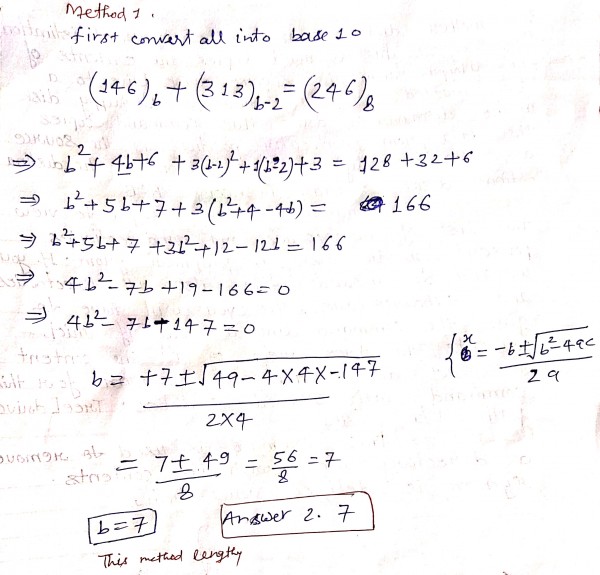 Method 1.
first convert all into base 10
(146)_b + (313)_{b-2} = (246)_8
⇒ b² + 4b + 6 + 3(b-2)² + 1(b-2) + 3 = 128 + 32 + 6
⇒ b² + 5b + 7 + 3(b² + 4 - 4b) = 166
⇒ b² + 5b + 7 + 3b² + 12 - 12b = 166
⇒ 4b² - 7b + 19 - 166 = 0
⇒ 4b² - 7b - 147 = 0
{ x = (-b ± √(b² - 4ac)) / 2a
b = (+7 ± √(49 - 4×4×-147)) / (2×4)
= (7 ± 49) / 8 = 56/8 = 7
b = 7
Answer 2. 7
This method lengthy